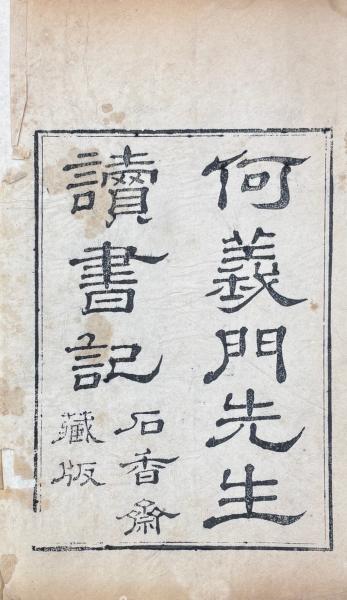 何義門先生
讀書記
石香齋
藏版